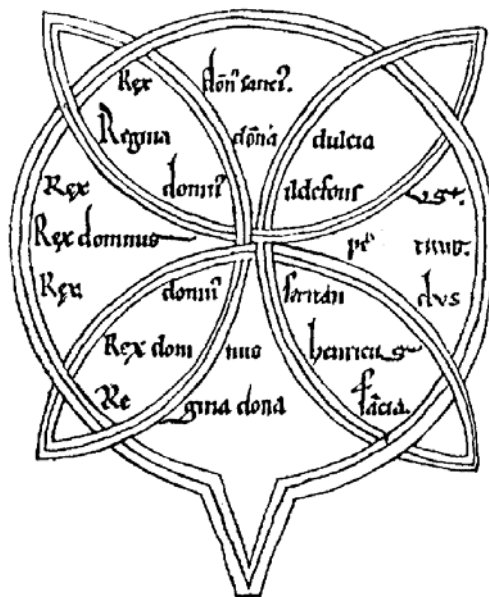 Rex donꝰ sancꝰ.
Regina dona dulcia
Rex domnꝰ ildefons us.
Rex domnus petrus.
Rex domnꝰ fernan dus
Rex dom nus henricus
Re gina dona